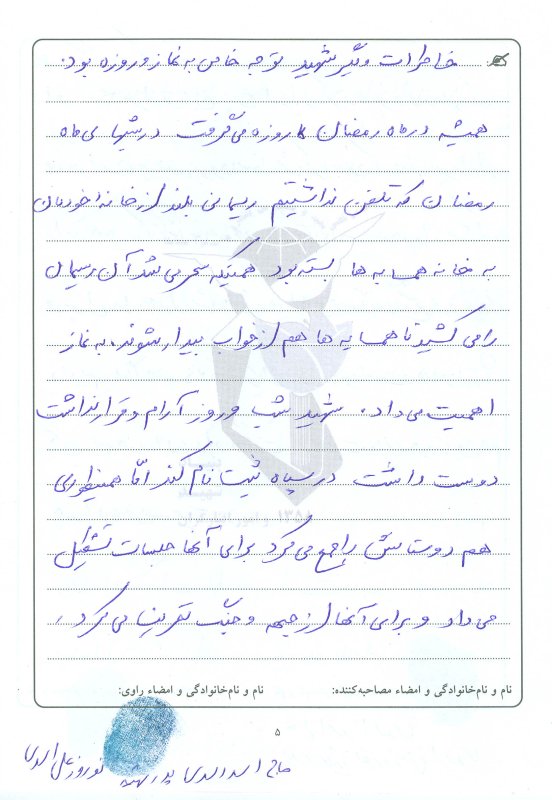 خاطرات دیگر شهید توجه خاص به نماز و روزه بود.
همیشه در ماه رمضان روزه می‌گرفت در شبهای ماه
رمضان که تلفن نداشتیم ریسمانی بلند از خانه خودمان
به خانه همسایه ها بسته بود همینکه سحر می شد آن ریسمان
را می کشید تا همسایه ها هم از خواب بیدار شوند. به نماز
اهمیت می داد. شهید شب و روز آرام و قرار نداشت
دوست داشت در سپاه ثبت نام کند امّا همینطوری
هم دوستانش را جمع می کرد برای آنها جلسات تشکیل
می داد و برای آنها از جبهه و جنگ تعریف می کرد.
نام و نام‌خانوادگی و امضاء مصاحبه‌کننده: نام و نام‌خانوادگی و امضاء راوی:
۵
حاج اسدالله اسدی پدر شهید نوروزعلی اسدی